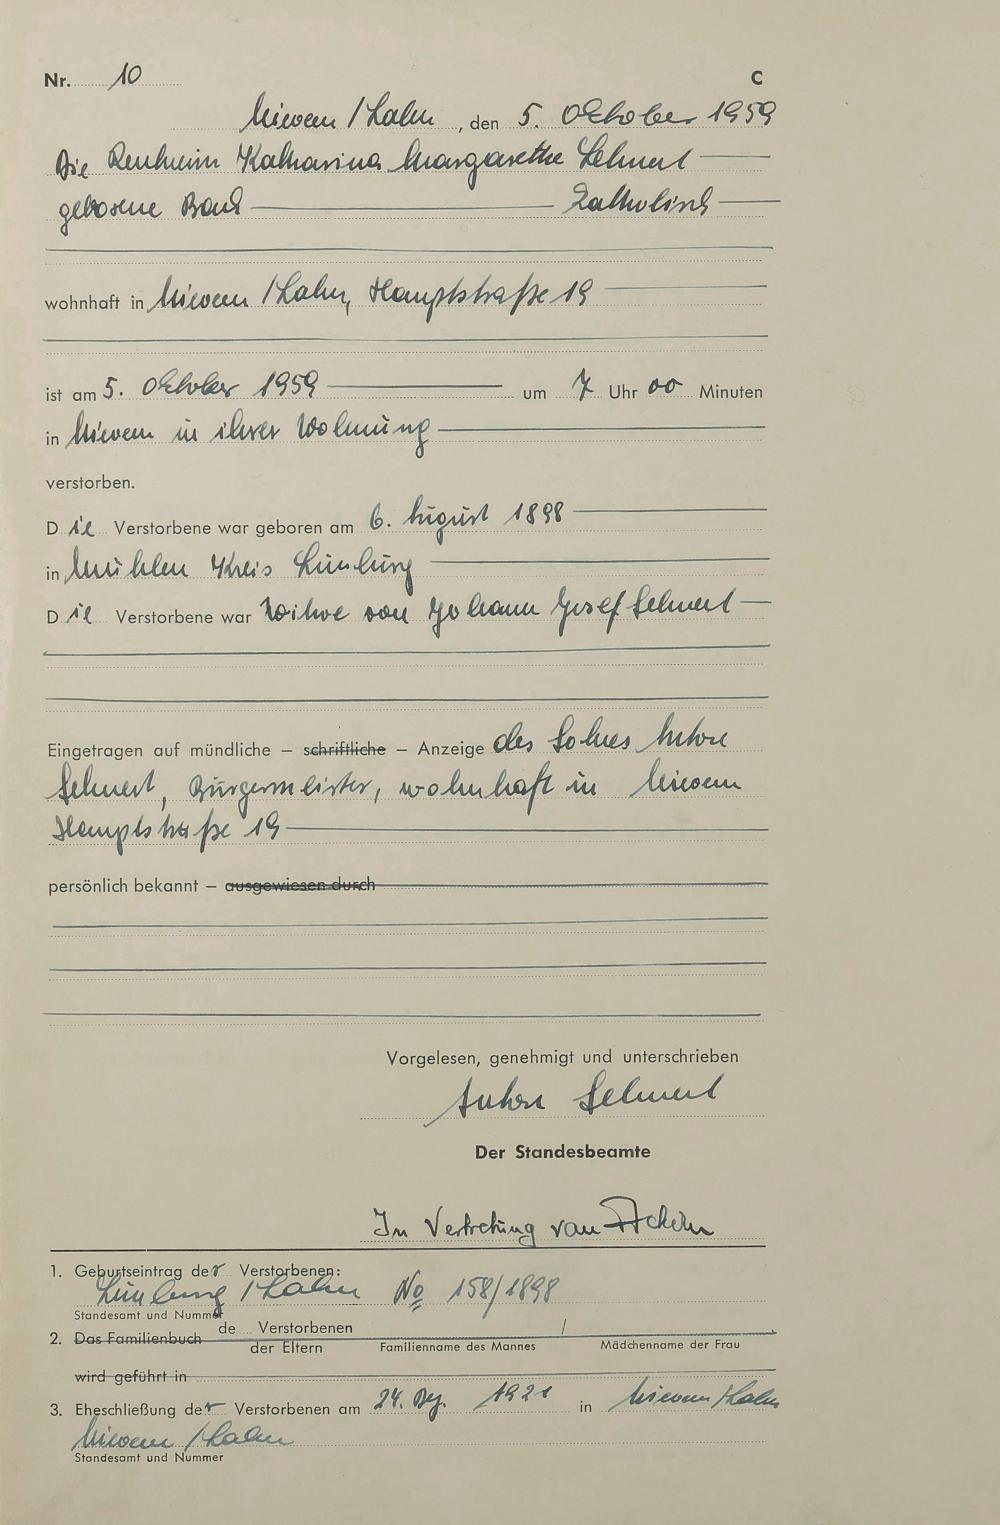 Nr. 10 C
Nievern / Lahn, den 5. Oktober 1959
Die Rentnerin Katharina Margarethe Lehnert
geborene katholisch
wohnhaft in Nievern / Lahn, Hauptstraße 19
ist am 5. Oktober 1959 um 7 Uhr 00 Minuten
in Nievern in ihrer Wohnung
verstorben.
Die Verstorbene war geboren am 6. August 1898
in Mühlen Kreis Limburg
Die Verstorbene war Witwe von Johann Josef Lehnert
Eingetragen auf mündliche – schriftliche – Anzeige des Sohnes Anton
Lehnert, Bürgermeister, wohnhaft in Nievern
Hauptstraße 19
persönlich bekannt – ausgewiesen durch
Vorgelesen, genehmigt und unterschrieben
Anton Lehnert
Der Standesbeamte
In Vertretung
1. Geburtseintrag der Verstorbenen:
Limburg / Lahn No 158/1898
Standesamt und Nummer
de Verstorbenen /
2. Das Familienbuch der Eltern Familienname des Mannes Mädchenname der Frau
wird geführt in
3. Eheschließung der Verstorbenen am 24. Dez. 1921 in Nievern / Lahn
Nievern / Lahn
Standesamt und Nummer